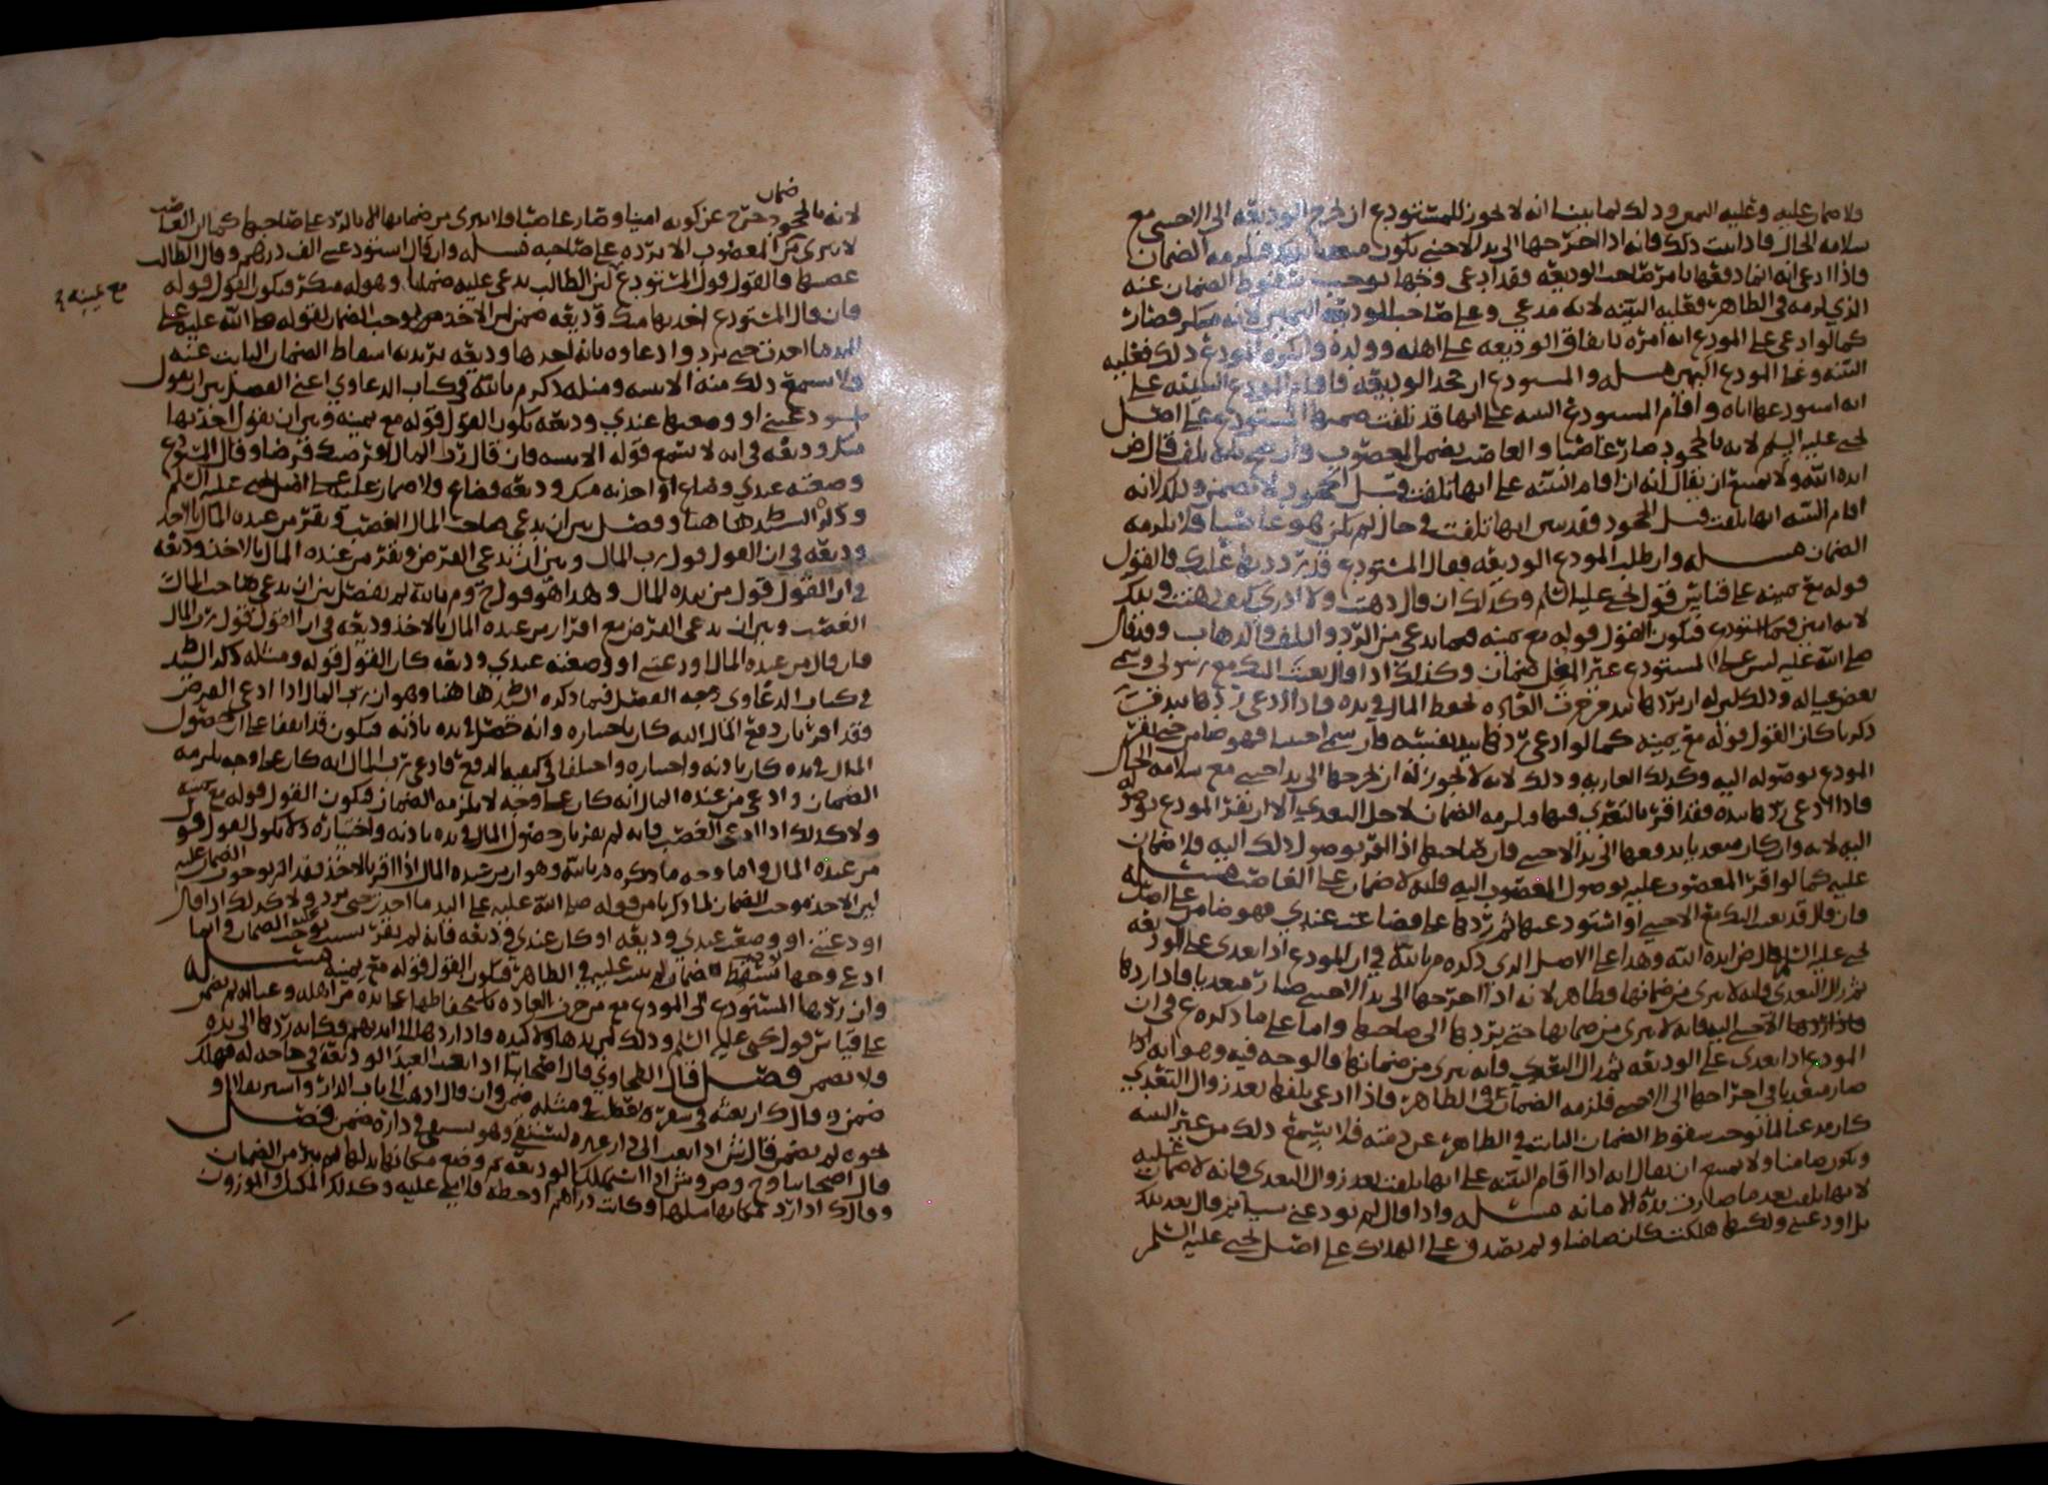 ولا ضمان عليه وعليه اليمين وذلك لما بينا انه لا يجوز للمستودع ان يخرج الوديعة الى الاجنبي مع
سلامة الحال فاذا ثبت ذلك فانه اذا اخرجها الى يد الاجنبي يكون متعديا فيلزمه الضمان
فاذا ادعى انه انما دفعها بامر صاحب الوديعة فقد ادعى وجها يوجب سقوط الضمان عنه
الذي لزمه في الظاهر فعليه البينة لانه مدعي وعلى صاحب الوديعة اليمين لانه منكر فصار
كما لو ادعى على المودع انه امره بانفاق الوديعة على اهله وولده وانكره المودع ذلك فعليه
البينة وعلى المودع اليمين مسله والمستودع ان جحد الوديعة فاقام المودع البينة على
انه استودعها اياه واقام المستودع البينة على انها قد تلفت ضمنها المستودع على اصل
يحيى عليه السلم لانه بالجحود صار غاصبا والغاصب يضمن المغصوب وان تلف قال ض
ايده الله ولا يمتنع ان يقال انه ان اقام البينة على انها تلفت قبل الجحود لا يضمن وذلك لانه
اقام البينة انها تلفت قبل الجحود فقد بين انها تلفت في حال لم يكن هو غاصبا فلا يلزمه
الضمان مسله وان طلب المودع الوديعة فقال المستودع قد رددتها عليك فالقول
قوله مع يمينه على قياس قول يحيى عليه السلم وكذلك ان قال ذهبت ولا ادري كيف ذهبت وذلك
لانه امين فيما استودع فيكون القول قوله مع يمينه فيما يدعي من الرد والتلف والذهاب وقد قال
صلى الله عليه ليس على المستودع غير المغل ضمان وكذلك اذا قال بعثت اليك مع رسولي وسمى
بعض عياله وذلك لان له ان يردها بيد من جرت العادة بحفظ المال في يده فاذا ادعى ردها بيد من
ذكرنا كان القول قوله مع يمينه كما لو ادعى ردها بيد نفسه وان سمى اجنبيا فهو ضامن حتى يقر
المودع بوصوله اليه وكذلك العارية وذلك لانه لا يجوز له ان يخرجها الى يد اجنبي مع سلامة الحال
فاذا ادعى ردها بيده فقد اقر بالتعدي فيها ويلزمه الضمان لاجل التعدي الا ان يقر المودع بوصوله
اليه لانه وان كان متعديا بدفعها الى يد الاجنبي فان صاحبها اذا اقر بوصول ذلك اليه فلا ضمان
عليه كما لو اقر المغصوب عليه بوصول المغصوب اليه فانه لا ضمان على الغاصب مسله
فان قال قد بعثت اليك مع الاجنبي او استودعتها ثم ردها على فضاعت عندي فهو ضامن على اصل
يحيى عليه السلم قال ض ايده الله وهذا على الاصل الذي ذكره م بالله في ان المودع اذا تعدى على الوديعة
ثم زال التعدي فانه لا يبرى من ضمانها وظاهر لانه اذا اخرجها الى يد الاجنبي صار متعديا فاذا ردها
فاذا ردها الاجنبي اليه فانه لا يبرى من ضمانها حتى يردها الى صاحبها واما على ما ذكره ع في ان
المودع اذا تعدى على الوديعة ثم زال التعدي فانه يبرى من ضمانها فالوجه فيه وهو انه اذا
صار متعديا في اخراجها الى الاجنبي فلزمه الضمان في الظاهر فاذا ادعى تلفها بعد زوال التعدي
كان مدعيا لما يوجب سقوط الضمان الثابت في الظاهر عن ذمته فلا يسمع ذلك من غير البينة
ويكون ضامنا ولا يمتنع ان يقال انه اذا اقام البينة على انها تلفت بعد زوال التعدي فانه لا ضمان عليه
لانها تلفت بعد ما صارت يده الامانة مسله واذا قال لم تودعني شيا ثم قال بعد ذلك
بل اودعتني ولكنها هلكت كان ضامنا ولم يصدق على الهلاك على اصل يحيى عليه السلم
لانه بالجحود خرج عن كونه امينا وصار غاصبا فلا يبرى من ضمانها الا بالرد على صاحبها كما ان الغاصب
ضمان
لا يبرى من المغصوب الا برده على صاحبه مسله وان قال استودعني الف درهم وقال الطالب
غصبتها فالقول قول المستودع لان الطالب يدعي عليه ضمانا وهو له منكر فيكون القول قوله
مع يمينه
فان قال المستودع اخذتها منك وديعة ضمن لان الاخذ هو يوجب الضمان لقوله صلى الله عليه على
اليد ما اخذت حتى ترد وادعاوه بانه اخذها وديعة يريد به اسقاط الضمان الثابت عنه
ولا يسمع ذلك منه الا ببينه ومثله ذكر م بالله في كتاب الدعاوي اعني الفصل بين ان يقول
استودعتني او وضعتها عندي وديعة يكون القول قوله مع يمينه وبين ان يقول اخذتها
منك وديعة في انه لا يسمع قوله الا ببينه فان قال رب المال اقرضتك قرضا وقال المستودع
وضعته عندي وضاع او اخذته منك وديعة فضاع ولا ضمان عليه على اصل يحيى عليه السلم
وذكره السيد ط هاهنا وفصل بين ان يدعي صاحب المال الغصب ويقر من عنده المال بالاخذ
وديعة في ان القول قول رب المال وبين ان يدعي القرض ويقر من عنده المال بالاخذ وديعة
في ان القول قول من بيده المال وهذا هو قول ح وم بالله لم يفصل بين ان يدعي صاحب المال
الغصب وبين ان يدعي القرض مع اقرار من عنده المال بالاخذ وديعة في ان القول قول رب المال
فان قال من عنده المال اودعتني او وضعته عندي وديعة كان القول قوله ومثله ذكر السيد ط
في كتاب الدعاوي وجه الفصل فيما ذكره السيد ط هاهنا وهو ان رب المال اذا ادعى القرض
فقد اقر بان دفع المال اليه كان باختياره وانه حصل في يده باذنه فيكون قد اتفقا على ان حصول
المال في يده كان باذنه واختياره واختلفا في كيفية الدفع فادعى رب المال انه كان على وجه يلزمه
الضمان وادعى من عنده المال انه كان على وجه لا يلزمه الضمان فيكون القول قوله مع يمينه
ولا كذلك اذا ادعى الغصب فانه لم يقر بان حصول المال في يده باذنه واختياره فلا يكون القول قول
من عنده المال واما وجه ما ذكره م بالله وهو ان من عنده المال اذا اقر بالاخذ فقد اقر بوجوب الضمان عليه
لان الاخذ يوجب الضمان لما ذكرنا من قوله صلى الله عليه على اليد ما اخذت حتى ترد ولا كذلك اذا قال
اودعتني او وضعت عندي وديعة او كان عندي وديعة فانه لم يقر بسبب يوجب الضمان وانما
ادعى وجها يسقط ضمان لم يثبت عليه في الظاهر فيكون القول قوله مع يمينه مسله
وان ردها المستودع الى المودع مع من جرت العادة باستحفاظها على يده من اهله وعياله لم يضمن
على قياس قول يحيى عليه السلم وذلك لان يدها ولا كيده فاذا ردها الى ايديهم فكانه ردها الى يده
ولا يضمن فصل قال الطحاوي قال اصحابنا اذا بعث العبد الوديعة في حاجة له فهلك
ضمن وقال ك ان بعثه في سفر فعطب في مثله ضمن وان قال اذهب الى باب الدار واشتر بقلا او
نحوه لم يضمن قال ش اذا بعث الى دار غيره ليستقي وهو يستقي في داره ضمن فصل
قال اصحابنا وح وص وش اذا استهلك الوديعة ثم وضع مكانها بدلها لم يبر من الضمان
وقال ك اذا رد مكانها مثلها وكانت دراهم او حنطة فلا شي عليه وكذلك المكيل والموزون